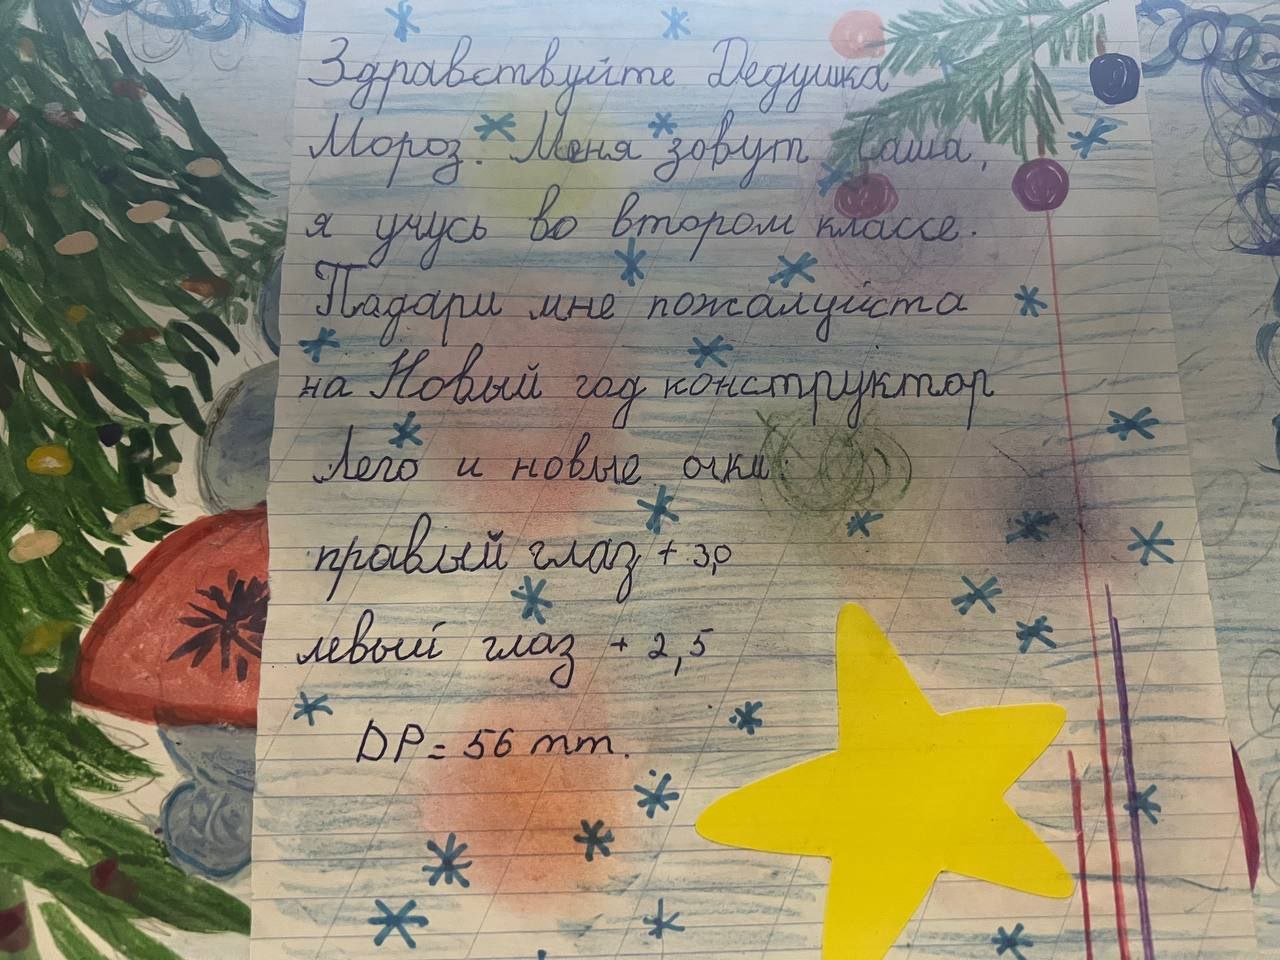 Здравствуйте Дедушка
Мороз. Меня зовут Саша,
я учусь во втором классе.
Падари мне пожалуйста
на Новый год конструктор
Лего и новые очки:
правый глаз + 3,0
левый глаз + 2,5
DP = 56 mm.